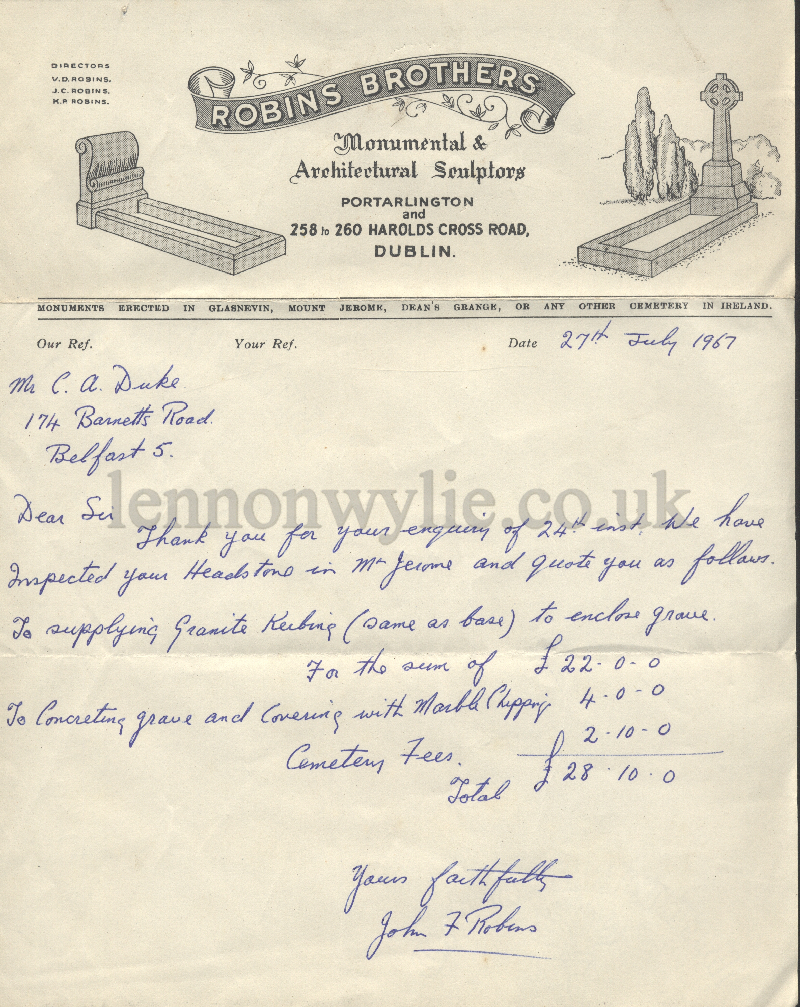 DIRECTORS
V.D. ROBINS.
J.C. ROBINS.
K.P. ROBINS.
ROBINS BROTHERS
Monumental &
Architectural Sculptors
PORTARLINGTON
and
258 to 260 HAROLDS CROSS ROAD,
DUBLIN.
MONUMENTS ERECTED IN GLASNEVIN, MOUNT JEROME, DEAN'S GRANGE, OR ANY OTHER CEMETERY IN IRELAND.
Our Ref. Your Ref. Date 27th July 1967
Mr C. A. Duke
174 Barnetts Road.
Belfast 5.
lennonwylie.co.uk
Dear Sir
Thank you for your enquiry of 24th inst. We have
Inspected your Headstone in Mt Jerome and quote you as follows.
To supplying Granite Kerbing (same as base) to enclose grave.
For the sum of £ 22-0-0
To Concreting grave and Covering with Marble Chipping 4-0-0
Cemetery Fees. 2-10-0
Total £ 28-10-0
Yours faithfully
John F Robins